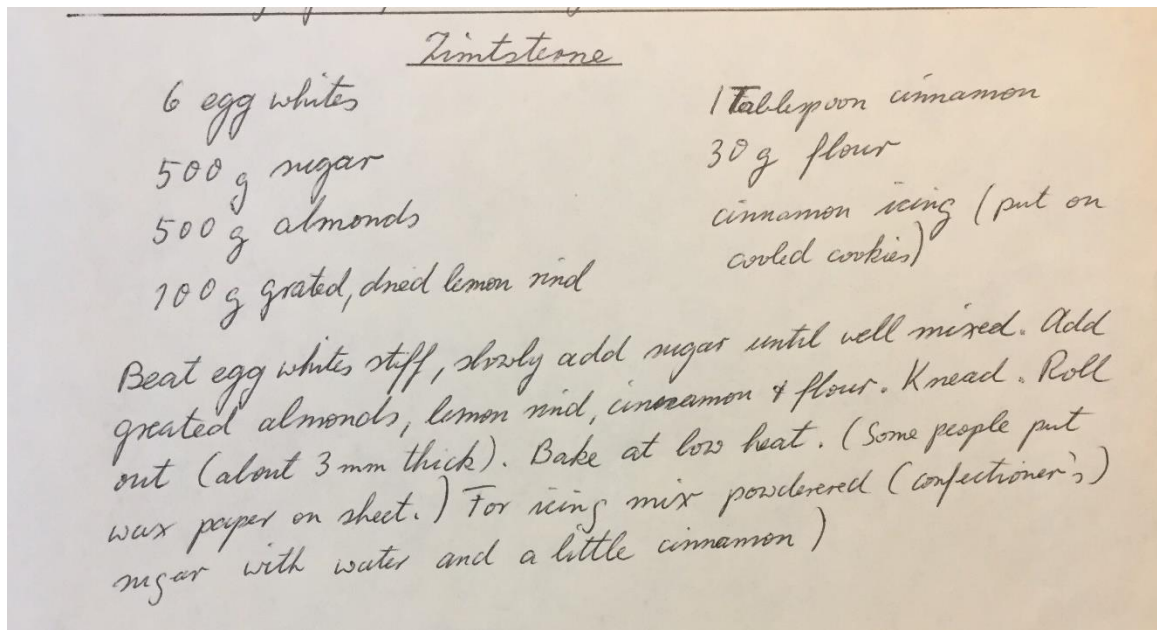 Zimtsterne
6 egg whites
500 g sugar
500 g almonds
100 g grated, dried lemon rind
1 Tablespoon cinnamon
30 g flour
cinnamon icing (put on
cooled cookies)
Beat egg whites stiff, slowly add sugar until well mixed. Add
greated almonds, lemon rind, cinnamon & flour. Knead. Roll
out (about 3 mm thick). Bake at low heat. (Some people put
wax paper on sheet.) For icing mix powderered (confectioner's)
sugar with water and a little cinnamon)